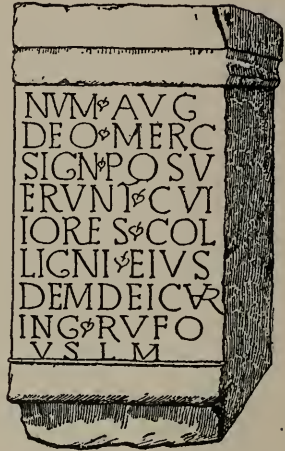 NVM❧AVG
DEO❧MERC
SIGN❧POSV
ERVNT❧CVI
IORES❧COL
LIGNI❧EIVS
DEMDEICVR
ING❧RVFO
VSLM